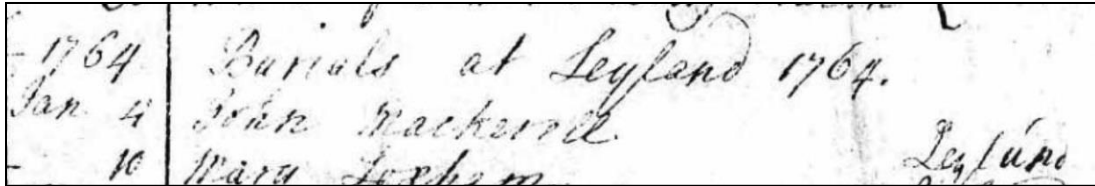 1764 Burials at Leyland 1764.
Jan 4 John Mackerell
10 Mary Loxham Leyland